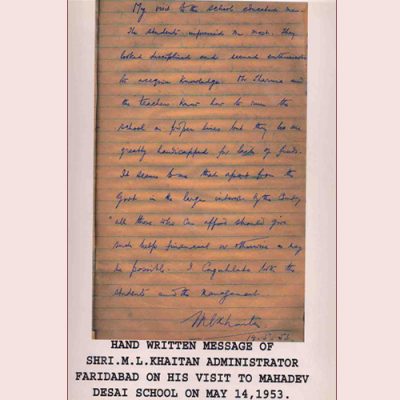 My visit to the school convinced me.
The students impressed me most. They
looked disciplined and seemed enthusiastic
to acquire knowledge. Mr Sharma and
the teachers know how to run the
school on proper lines but they too are
greatly handicapped for lack of funds.
It seems to me that apart from the
Govt. in the larger interest of the
all those who can afford should give
such help financial or otherwise as may
be possible. I Congratulate both the
students and the Management.
M L Khaitan
HAND WRITTEN MESSAGE OF
SHRI.M.L.KHAITAN ADMINISTRATOR
FARIDABAD ON HIS VISIT TO MAHADEV
DESAI SCHOOL ON MAY 14,1953.